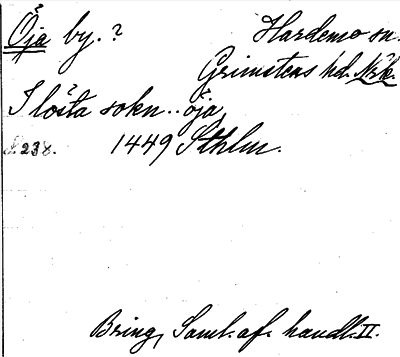 Öja by. ?
Hardemo sn.
Grimstens hd. Nrk.
I løsta sokn .. øja
S. 238.
1449 Sthlm.
Bring, Saml. af. handl. II.